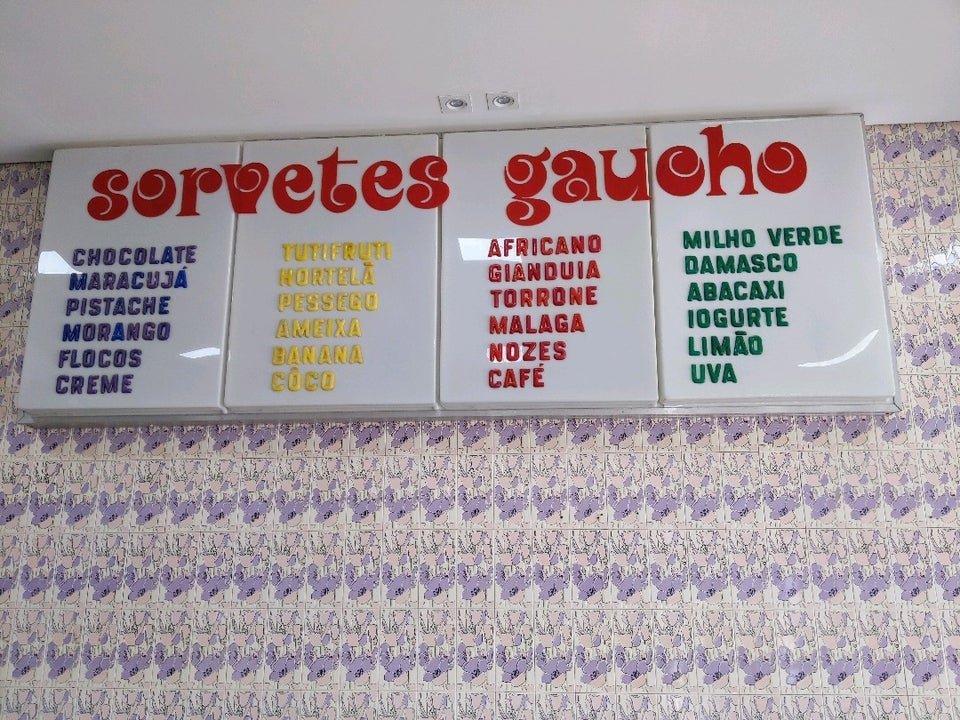 sorvetes gaucho
CHOCOLATE
MARACUJÁ
PISTACHE
MORANGO
FLOCOS
CREME
TUTIFRUTI
HORTELÃ
PESSEGO
AMEIXA
BANANA
CÔCO
AFRICANO
GIANDUIA
TORRONE
MALAGA
NOZES
CAFÉ
MILHO VERDE
DAMASCO
ABACAXI
IOGURTE
LIMÃO
UVA